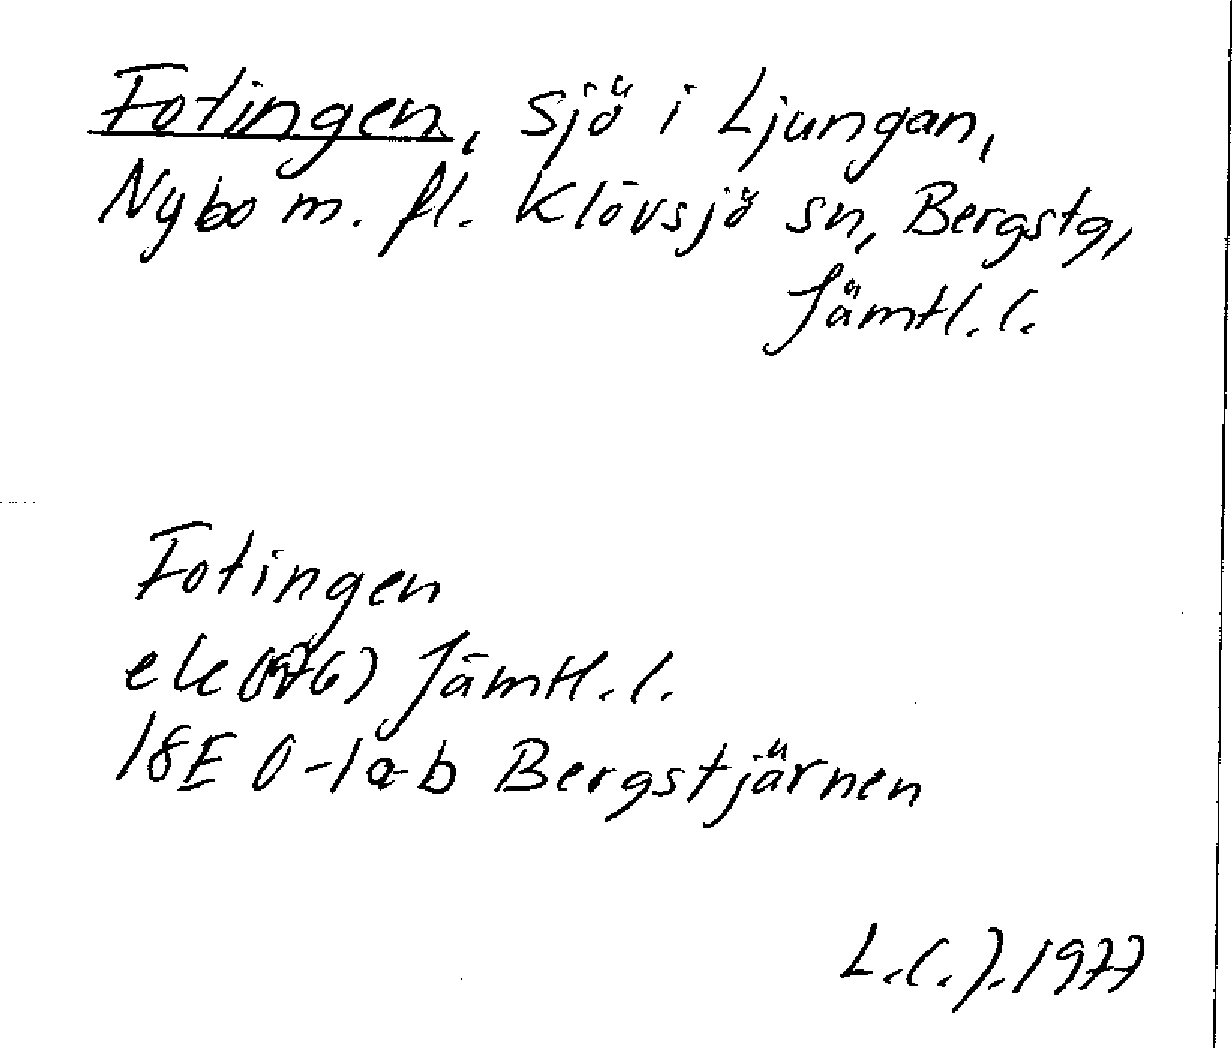 Fotingen, sjö i Ljungan,
Nybo m. fl. Klövsjö sn, Bergstg,
Jämtl. l.
Fotingen
ek (1976) Jämtl. l.
18E 0-1 a-b Bergstjärnen
L.C.J. 1977